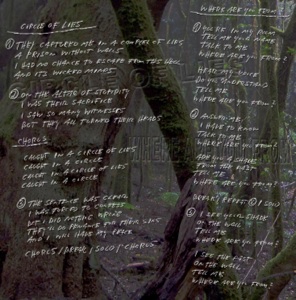 CIRCLE OF LIES
① THEY CAPTURED ME IN A COMPLEX OF LIES
A PRISON WITHOUT WALLS
I HAD NO CHANCE TO ESCAPE FROM THIS
AND ITS WICKED
② ON THE ALTAR OF STUPIDITY
I WAS THEIR SACRIFICE
I SAW SO MANY WITNESSES
BUT THEY ALL TURNED THEIR HEADS
CHORUS
CAUGHT IN A CIRCLE OF LIES
CAUGHT IN A CIRCLE
CAUGHT IN A CIRCLE OF LIES
CAUGHT IN A CIRCLE
③ THE SENTENCE WAS
I WAS FORCED TO CONFESS
BUT I DID NOTHING WRONG
THEY'LL DO PENANCE FOR THEIR SINS
AND I WILL HAVE MY PEACE
CHORUS / BREAK / SOLO / CHORUS
WHERE ARE YOU FROM?
① YOU'RE IN MY ROOM
TELL ME YOUR NAME
TALK TO ME
WHERE ARE YOU FROM?
HEAR MY VOICE
MY QUESTIONS
TELL ME
WHERE ARE YOU FROM?
②
I HAVE TO KNOW
TALK TO ME
WHERE ARE YOU FROM?
ARE YOU A GHOST
FROM THE PAST
TELL ME
WHERE ARE YOU FROM?
BREAK / REPEAT ① / SOLO
③ I SEE YOUR SHADOW
ON THE WALL
TELL ME
WHERE ARE YOU FROM?
I SEE THE PAST
ON THE WALL
TELL ME
WHERE ARE YOU FROM?